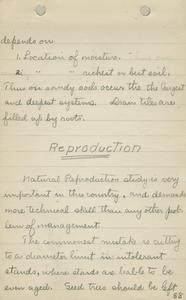 depends on
1. Location of moisture.
2. " " richest or best soil.
Thus on sandy soils occur the the largest
and deepest systems. Drain tiles are
filled up by roots.
Reproduction
Natural Reproduction study is very
important in this country, and demands
more technical skill than any other prob-
lem of management.
The commonest mistake is cutting
to a diameter limit in intolerant
stands, where stands are liable to be
even aged. Seed trees should be left